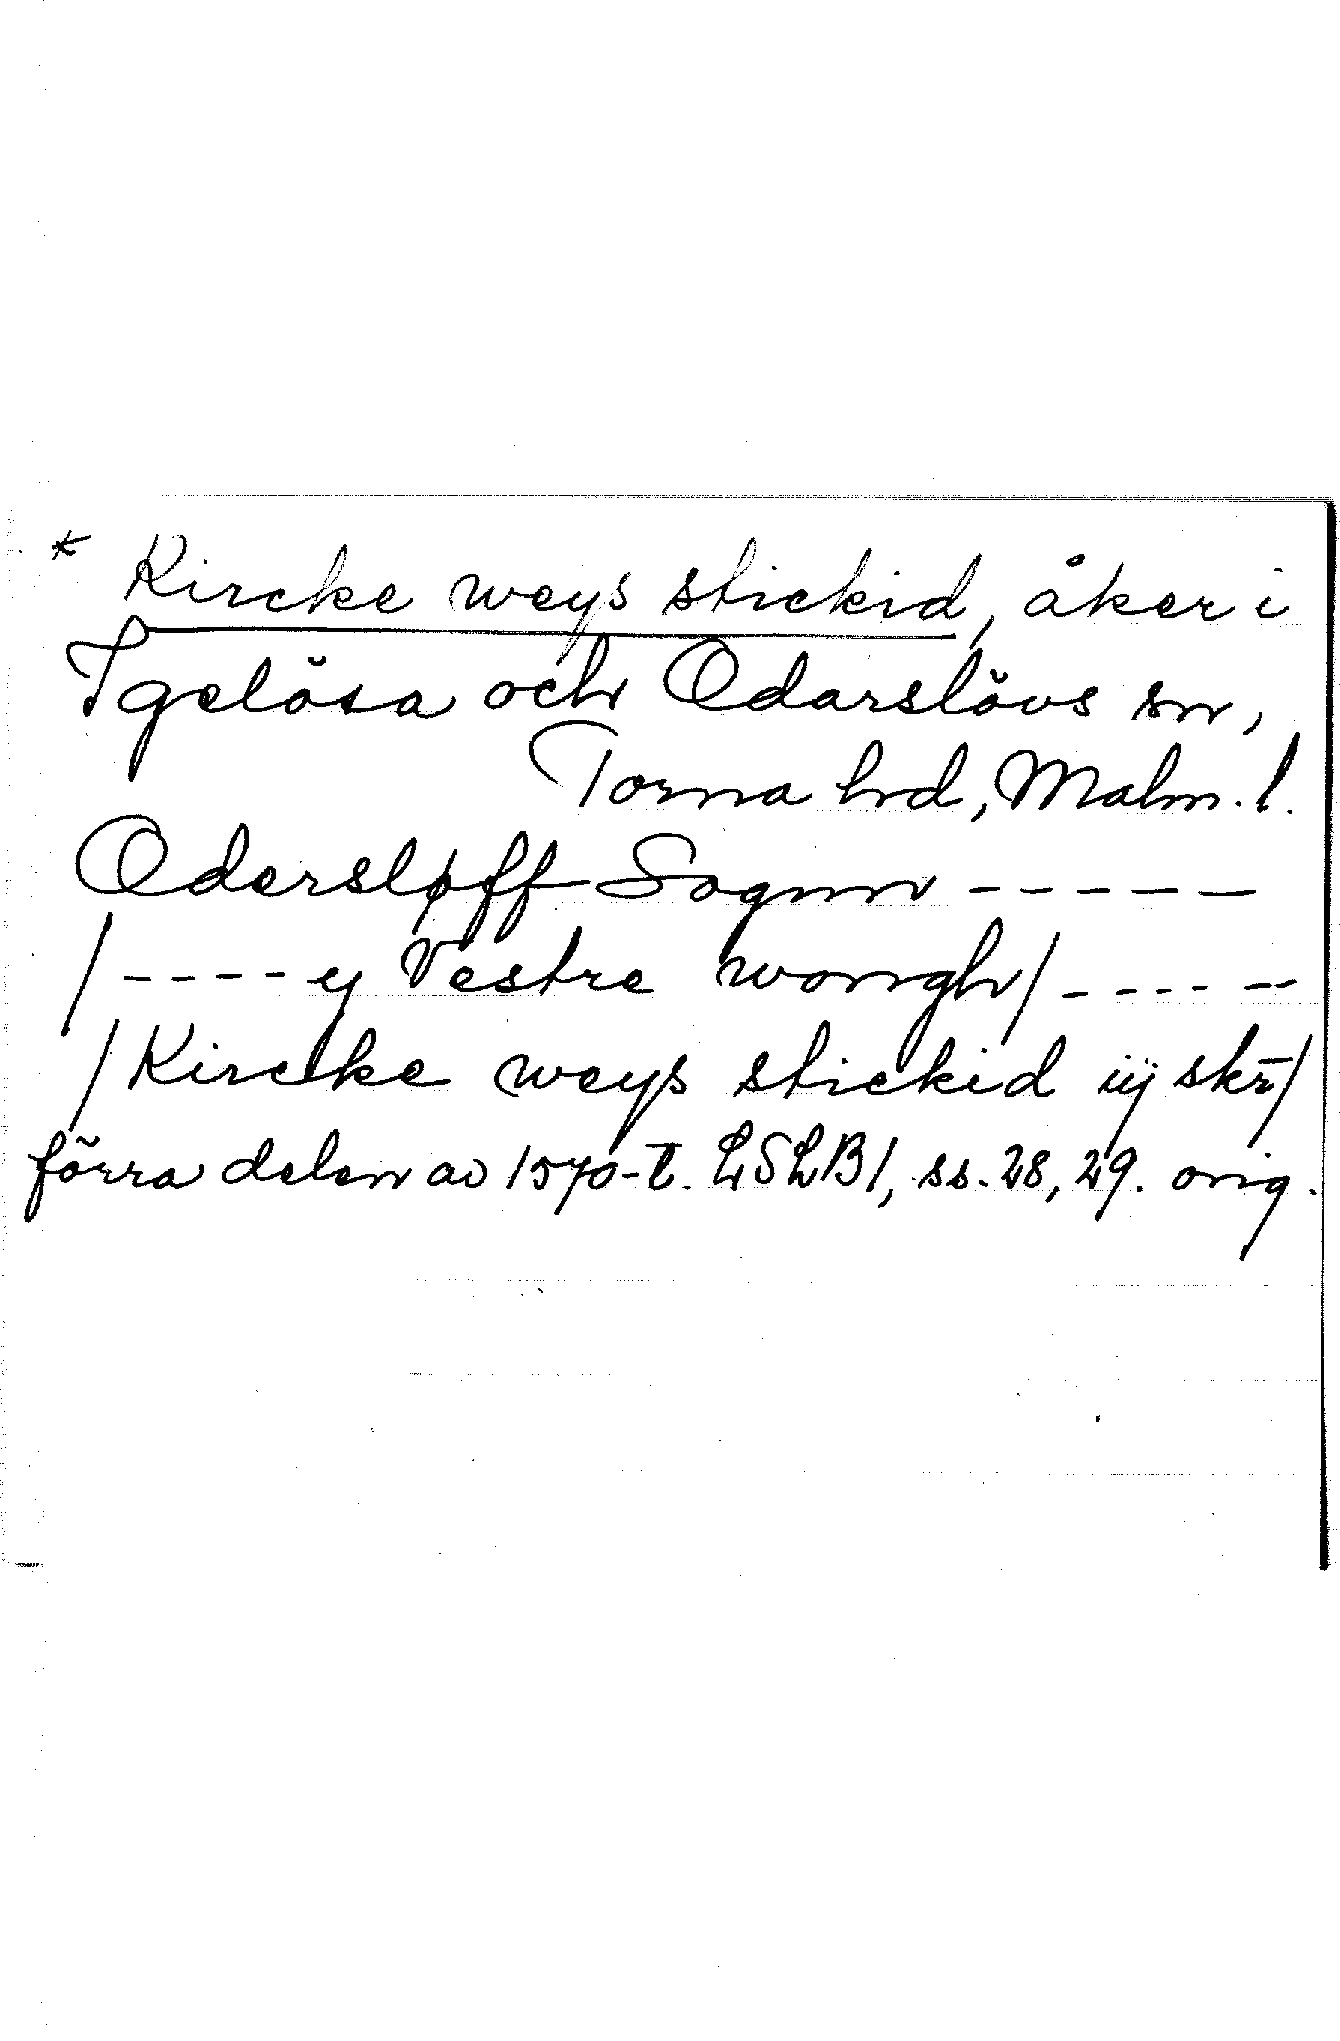 * Kircke weys stickid, åker i
Igelösa och Odarslövs sn,
Torna hd, Malm. l.
Odersløff Sognn -----
/---- ej Vestre wongh/ -----
/Kircke weys stickid iij skr̄/
förra delen av 1570-t. LSLB1, ss. 28, 29. orig.